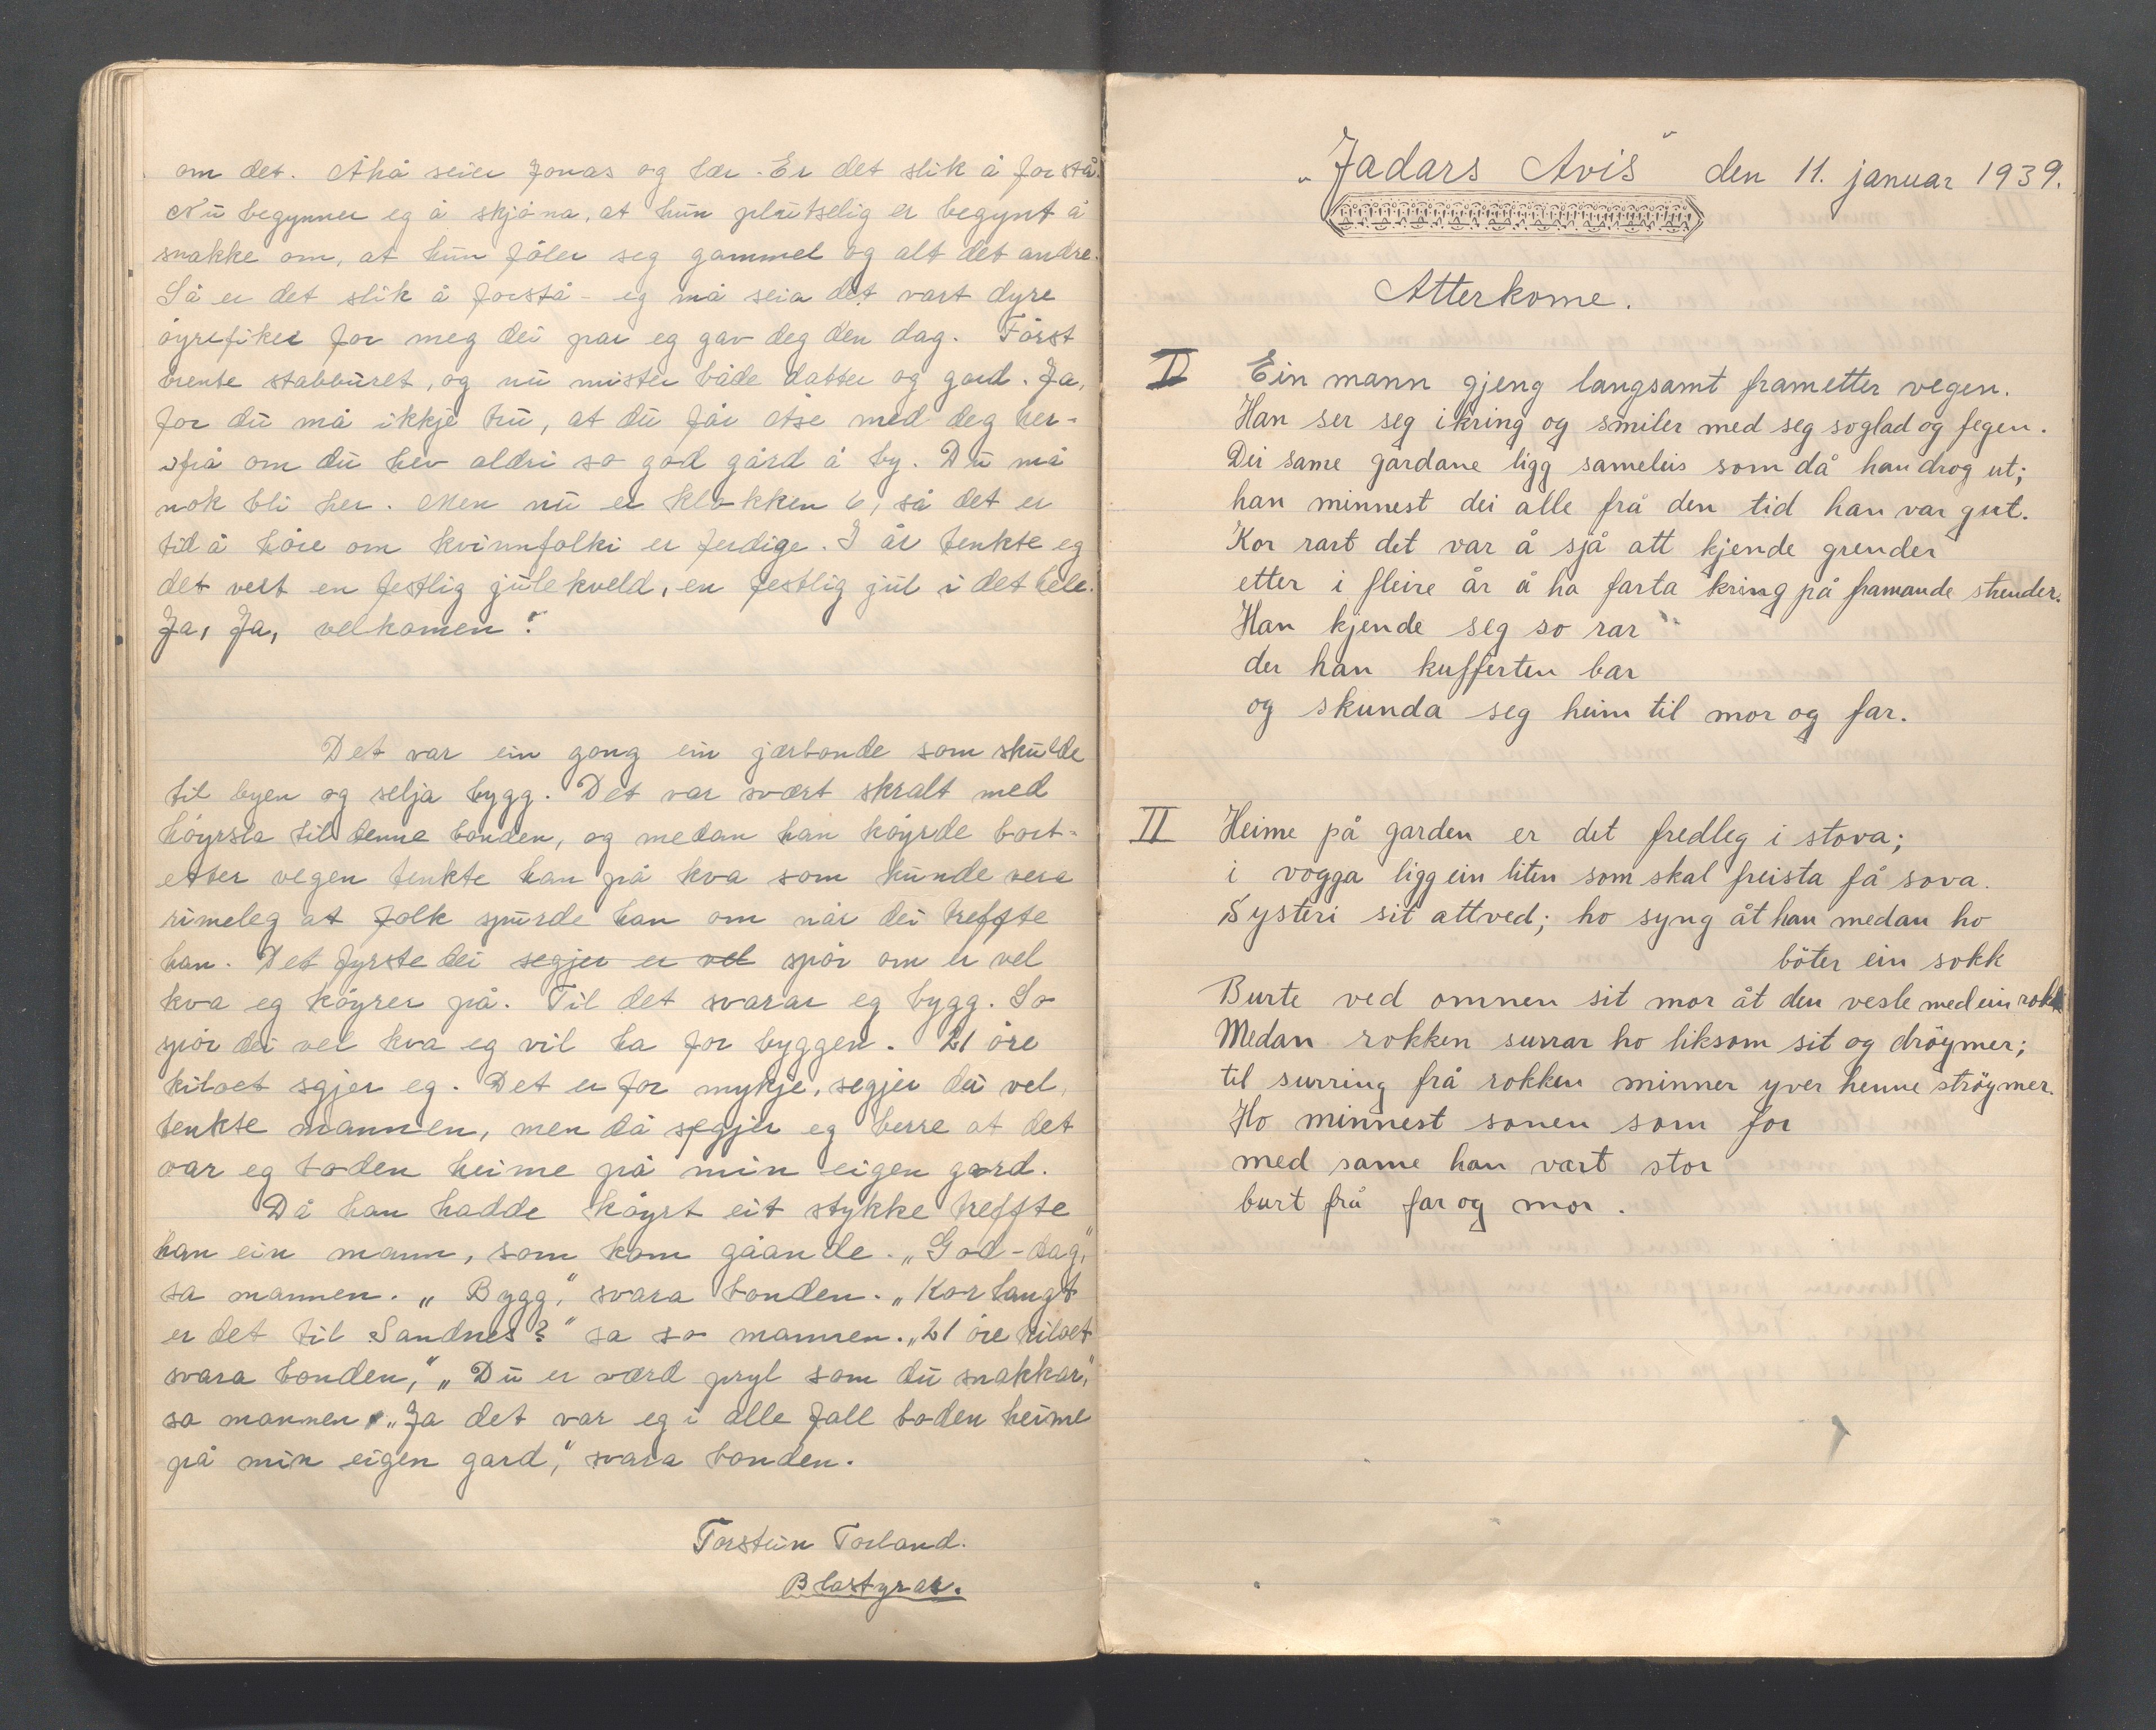 om det. Åhå seier Jonas og lær. Er det slik å forstå.
Nu begynner eg å skjöna, at hun plutselig er begynt å
snakke om, at hun föler seg gammel og alt det andre.
Så er det slik å forstå - eg må seia det vart dyre
öyrefiker for meg dei par eg gav deg den dag. Först
brente stabburet, og nu mister både datter og gard. Ja,
for du må ikkje tru, at du får Åse med deg her-
ifrå om du hev aldri so god gård å by. Du må
nok bli her. Men nu er klokken 6, så det er
tid å höre om kvinnfolki er ferdige. I år tenkte eg
det vert en festlig julekveld, en festlig jul i det hele.
Ja, Ja, velkomen."
Det var ein gong ein jærbonde som skulde
til byen og selja bygg. Det var svært skralt med
höyrsla til denne bonden, og medan han köyrde bort-
etter vegen tenkte han på kva som kunde vera
rimeleg at folk spurde han om når dei treffte
han. Det fyrste dei segjer er vel spör om er vel
kva eg köyrer på. Til det svarar eg bygg. So
spör dei vel kva eg vil ha for byggen. 21 öre
kiloet sgjer eg. Det er for mykje, segjer du vel,
tenkte mannen, men då segjer eg berre at det
var eg boden heime på min eigen gard.
Då han hadde köyrt eit stykke treffte
han ein mann, som kom gåande. „God-dag,"
sa mannen. „Bygg," svara bonden. „Kor langt
er det til Sandnes?" sa so mannen. „21 öre kiloet
svara bonden," „Du er værd pryl som du snakkar,"
sa mannen. „Ja det var eg i alle fall boden heime
på min eigen gard," svara bonden.
Torstein Torland.
Bladstyrar.
„Jadars Avis" den 11. januar 1939.
Atterkome.
I Ein mann gjeng langsamt frametter vegen.
Han ser seg ikring og smiler med seg so glad og fegen.
Dei same gardane ligg sameleis som då han drog ut;
han minnest dei alle frå den tid han var gut.
Kor rart det var å sjå att kjende grender
etter i fleire år å ha farta kring på framande strender.
Han kjende seg so rar
der han kufferten bar
og skunda seg heim til mor og far.
II Heime på garden er det fredleg i stova;
i vogga ligg ein liten som skal freista få sova.
Systeri sit attved; ho syng åt han medan ho
böter ein sokk
Burte ved omnen sit mor åt den vesle med ein rokk
Medan rokken surrar ho liksom sit og dröymer;
til surring frå rokken minner yver henne ströymer.
Ho minnest sonen som for
med same han vart stor
burt frå far og mor.